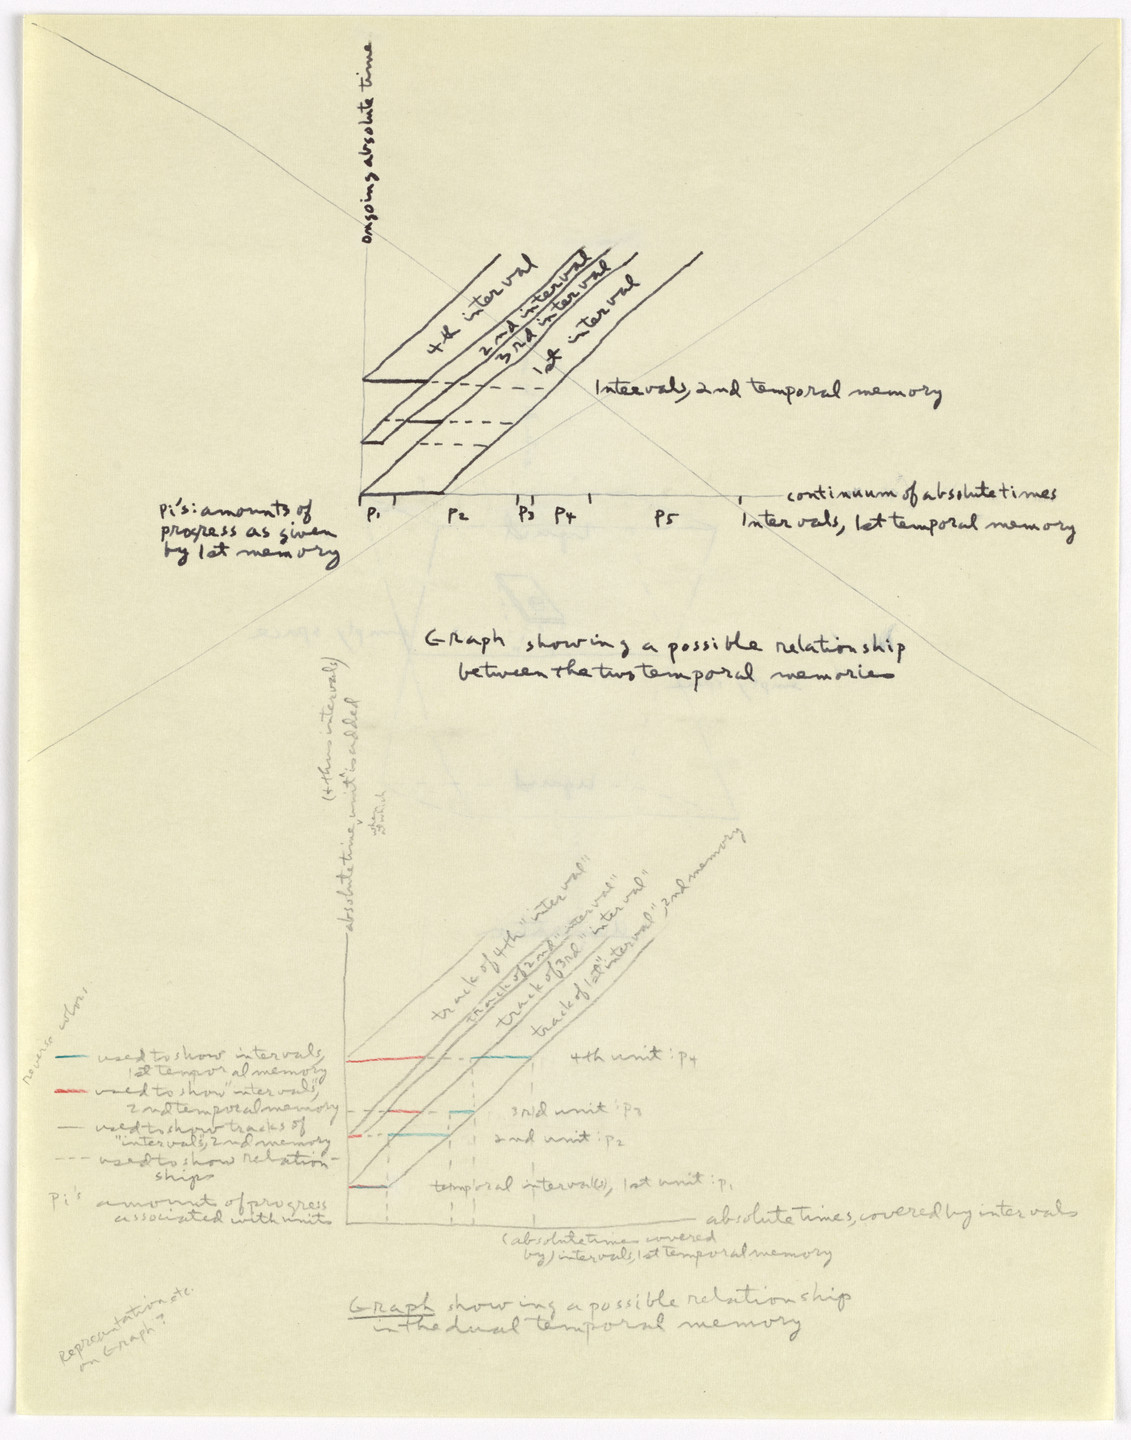 ongoing absolute time
4th interval
2nd interval
3rd interval
1st interval
Intervals, 2nd temporal memory
continuum of absolute times
P1 P2 P3 P4 P5 Intervals, 1st temporal memory
Pi's: amounts of
progress as given
by 1st memory
Graph showing a possible relationship
between the two temporal memories
(+ thus intervals)
absolute time, unit is added
track of 4th "interval"
track of 2nd "interval"
track of 3rd "interval"
track of 1st "interval", 2nd memory
reverse colors
used to show intervals,
1st temporal memory
used to show "intervals",
2nd temporal memory
used to show tracks of
"intervals", 2nd memory
used to show relation-
ships
Pi's amounts of progress
associated with units
4th unit: P4
3rd unit: P3
2nd unit: P2
temporal interval(s), 1st unit: P1
absolute times, covered by intervals
(absolute times covered
by) intervals, 1st temporal memory
Graph showing a possible relationship
in the dual temporal memory
Representation etc.
on Graph?